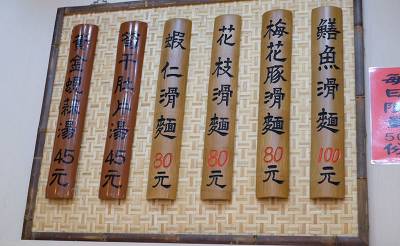 鱔魚滑麵100元
梅花豚滑麵80元
花枝滑麵80元
蝦仁滑麵80元
筍干肚片湯45元
金蜆湯45元
每日限量50份